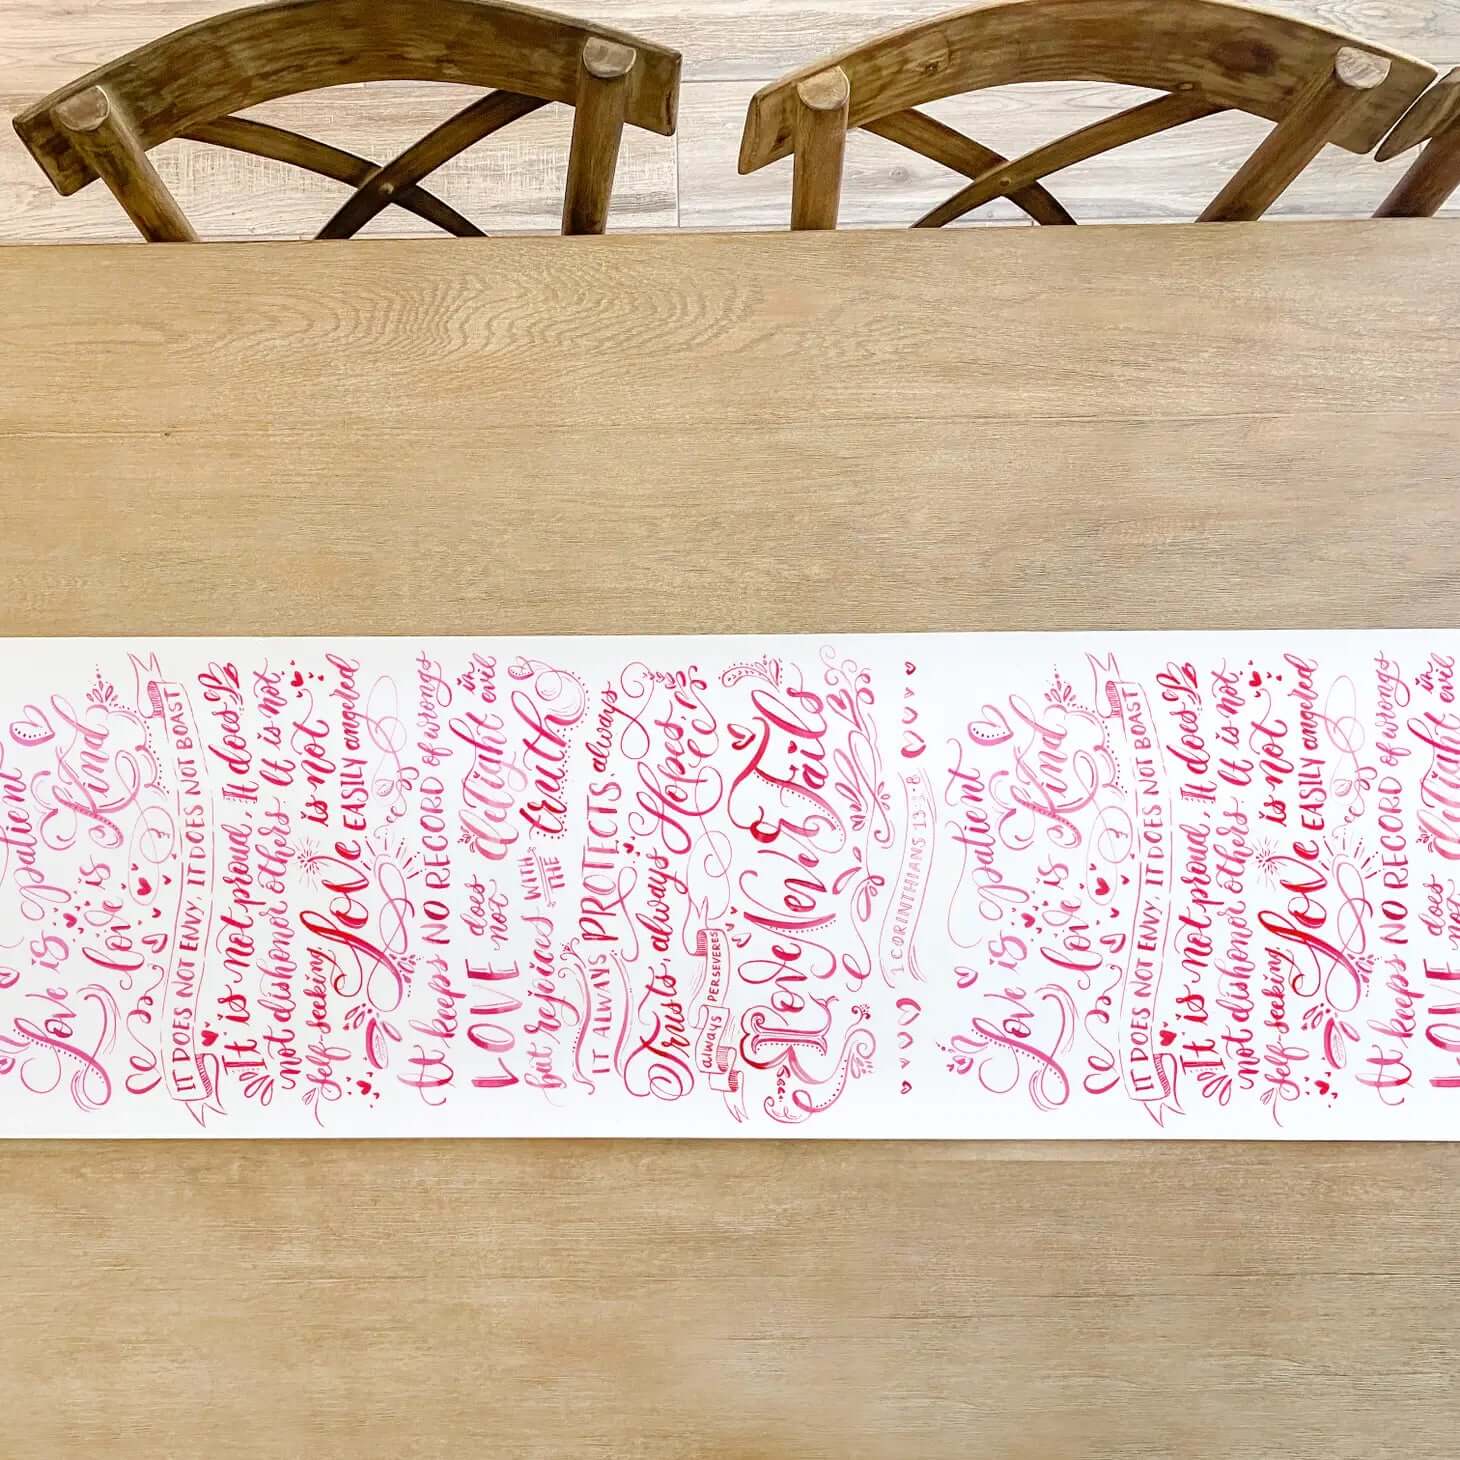 Love is patient
love is Kind
IT DOES NOT ENVY, IT DOES NOT BOAST
It is not proud, It does
not dishonor others It is not
self-seeking is not
love EASILY angered
It keeps NO RECORD of wrongs
LOVE does not delight in evil
but rejoices WITH THE truth
IT ALWAYS PROTECTS, always
Trusts, always Hopes,
always PERSEVERES
Love Never Fails
1 CORINTHIANS
Love is patient
love is Kind
IT DOES NOT ENVY, IT DOES NOT BOAST
It is not proud, It does
not dishonor others It is not
self-seeking is not
love EASILY angered
It keeps NO RECORD of wrongs
LOVE does not delight in evil